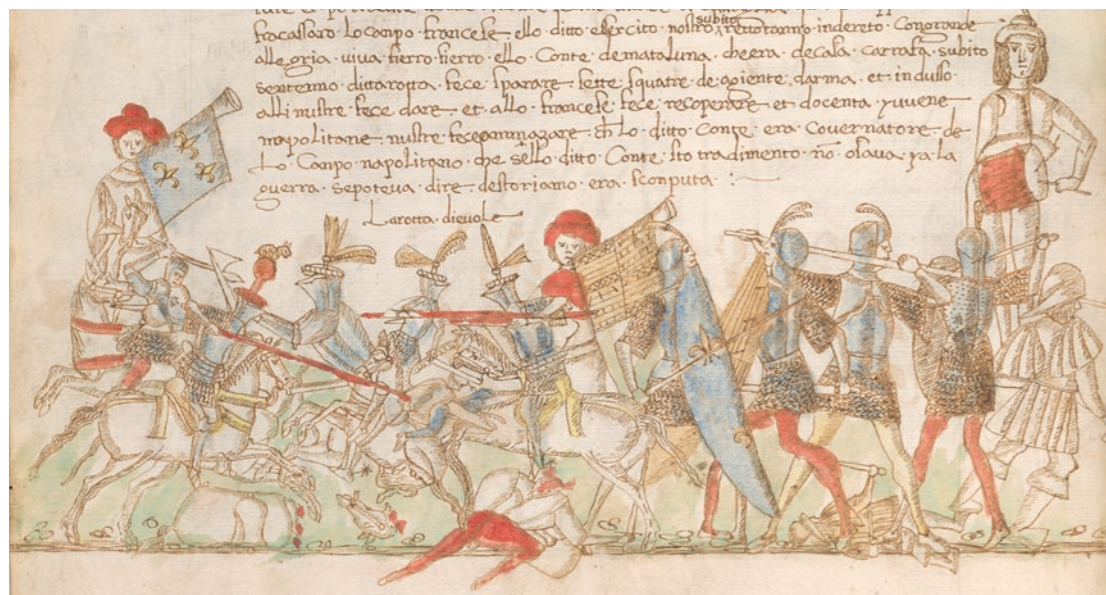 fracassaro · lo canpo · francese · ello · ditto · essercito · nostro subito retrotanno · indereto · Congrande
allegria · viva fierro · fierro · ello · Conte · de mataluna · che era · decasa · carrafa · subito
sentenno · ditta rotta · fece · sparare · sette squatre · de agiente · darma · et indusso
alli nustre · fece dare · et · allo · francese · fece · recoperare · et docenta · yuvene
napolitane · nustre · fece ammazare · lo · ditto · Conte · era · Covernatore · de
Lo · Canpo · napolitano · che sello · ditto · Conte · sto tradimento · nō · osava · ya · la
guerra · sepoteva · dire · destoriamo · era · sconputa · : ~
Larotta · dievole